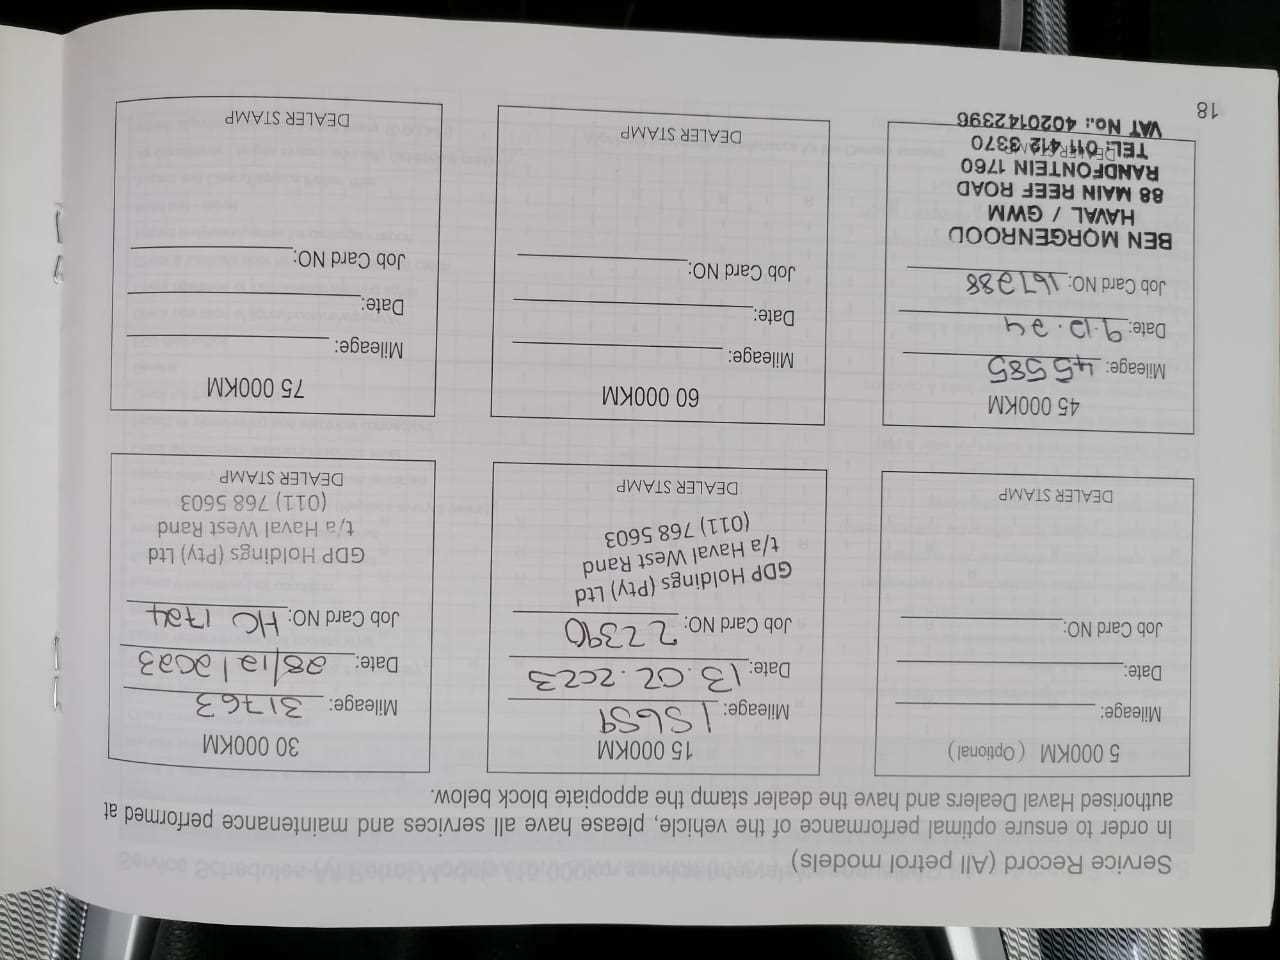 Service Record (All petrol models)
In order to ensure optimal performance of the vehicle, please have all services and maintenance performed at
authorised Haval Dealers and have the dealer stamp the appopiate block below.
5 000KM (Optional)
Mileage:
Date:
Job Card NO:
DEALER STAMP
15 000KM
Mileage: 15659
Date: 13.02.2023
Job Card NO: 22390
GDP Holdings (Pty) Ltd
t/a Haval West Rand
(011) 768 5603
DEALER STAMP
30 000KM
Mileage: 31763
Date: 28/12/2023
Job Card NO: HC 1724
GDP Holdings (Pty) Ltd
t/a Haval West Rand
(011) 768 5603
DEALER STAMP
45 000KM
Mileage: 45585
Date: 9.12.24
Job Card NO: 167288
BEN MORGENROOD
HAVAL / GWM
88 MAIN REEF ROAD
RANDFONTEIN 1760
TEL: 011 412 3370
DEALER STAMP
VAT No.: 4020142396
60 000KM
Mileage:
Date:
Job Card NO:
DEALER STAMP
75 000KM
Mileage:
Date:
Job Card NO:
DEALER STAMP
18